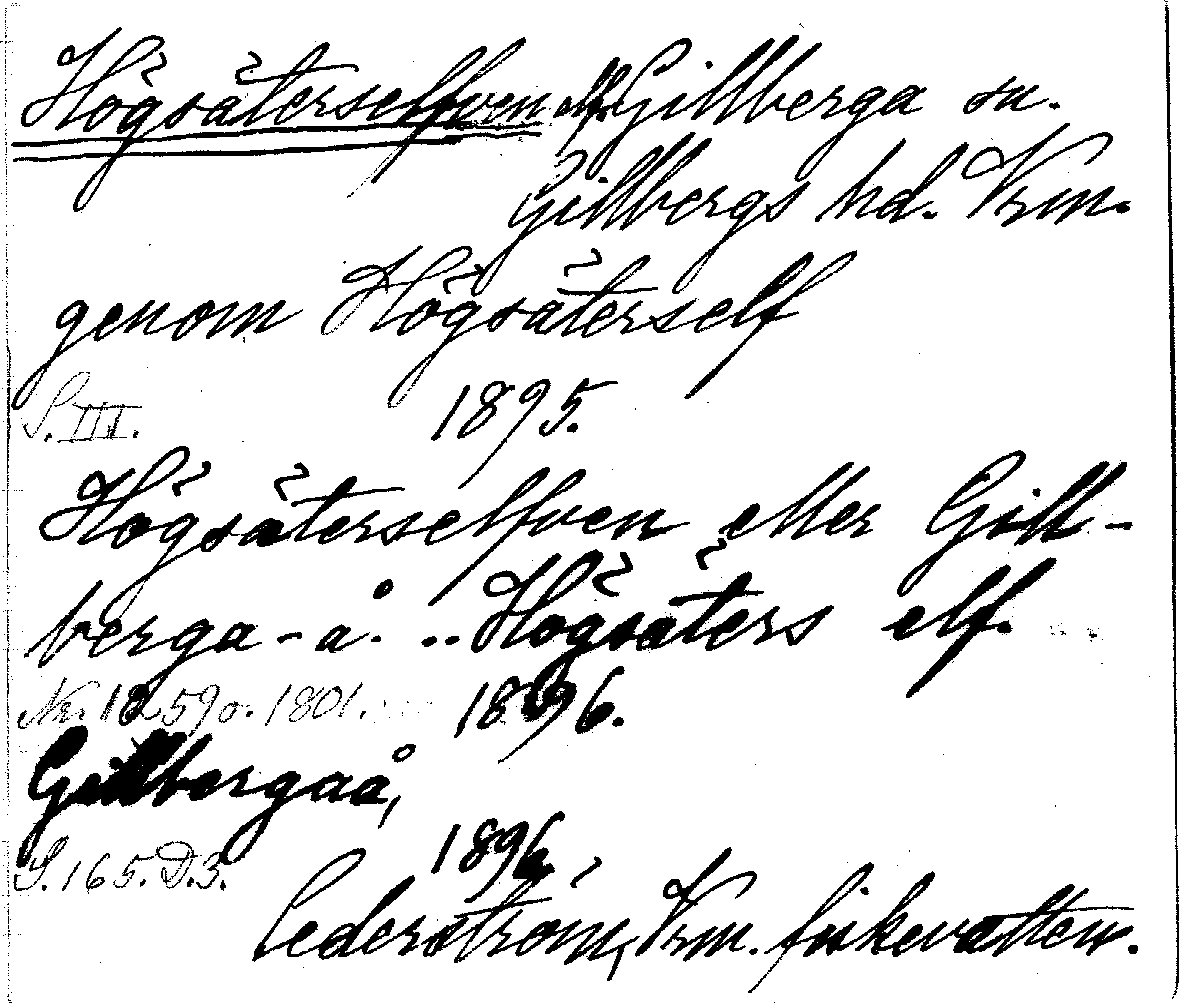 Högsäterselfven elf. Gillberga sn.
Gillbergs hd. Vrm.
genom Högsäterself
S. III. 1895.
Högsäterselfven eller Gill-
berga-å. .. Högsäters elf. ..
Nr. 1259 o. 1801. ... 1896.
Gillbergaå,
S. 165. D.3. 1896.
Cederström, Vrm. fiskevatten.